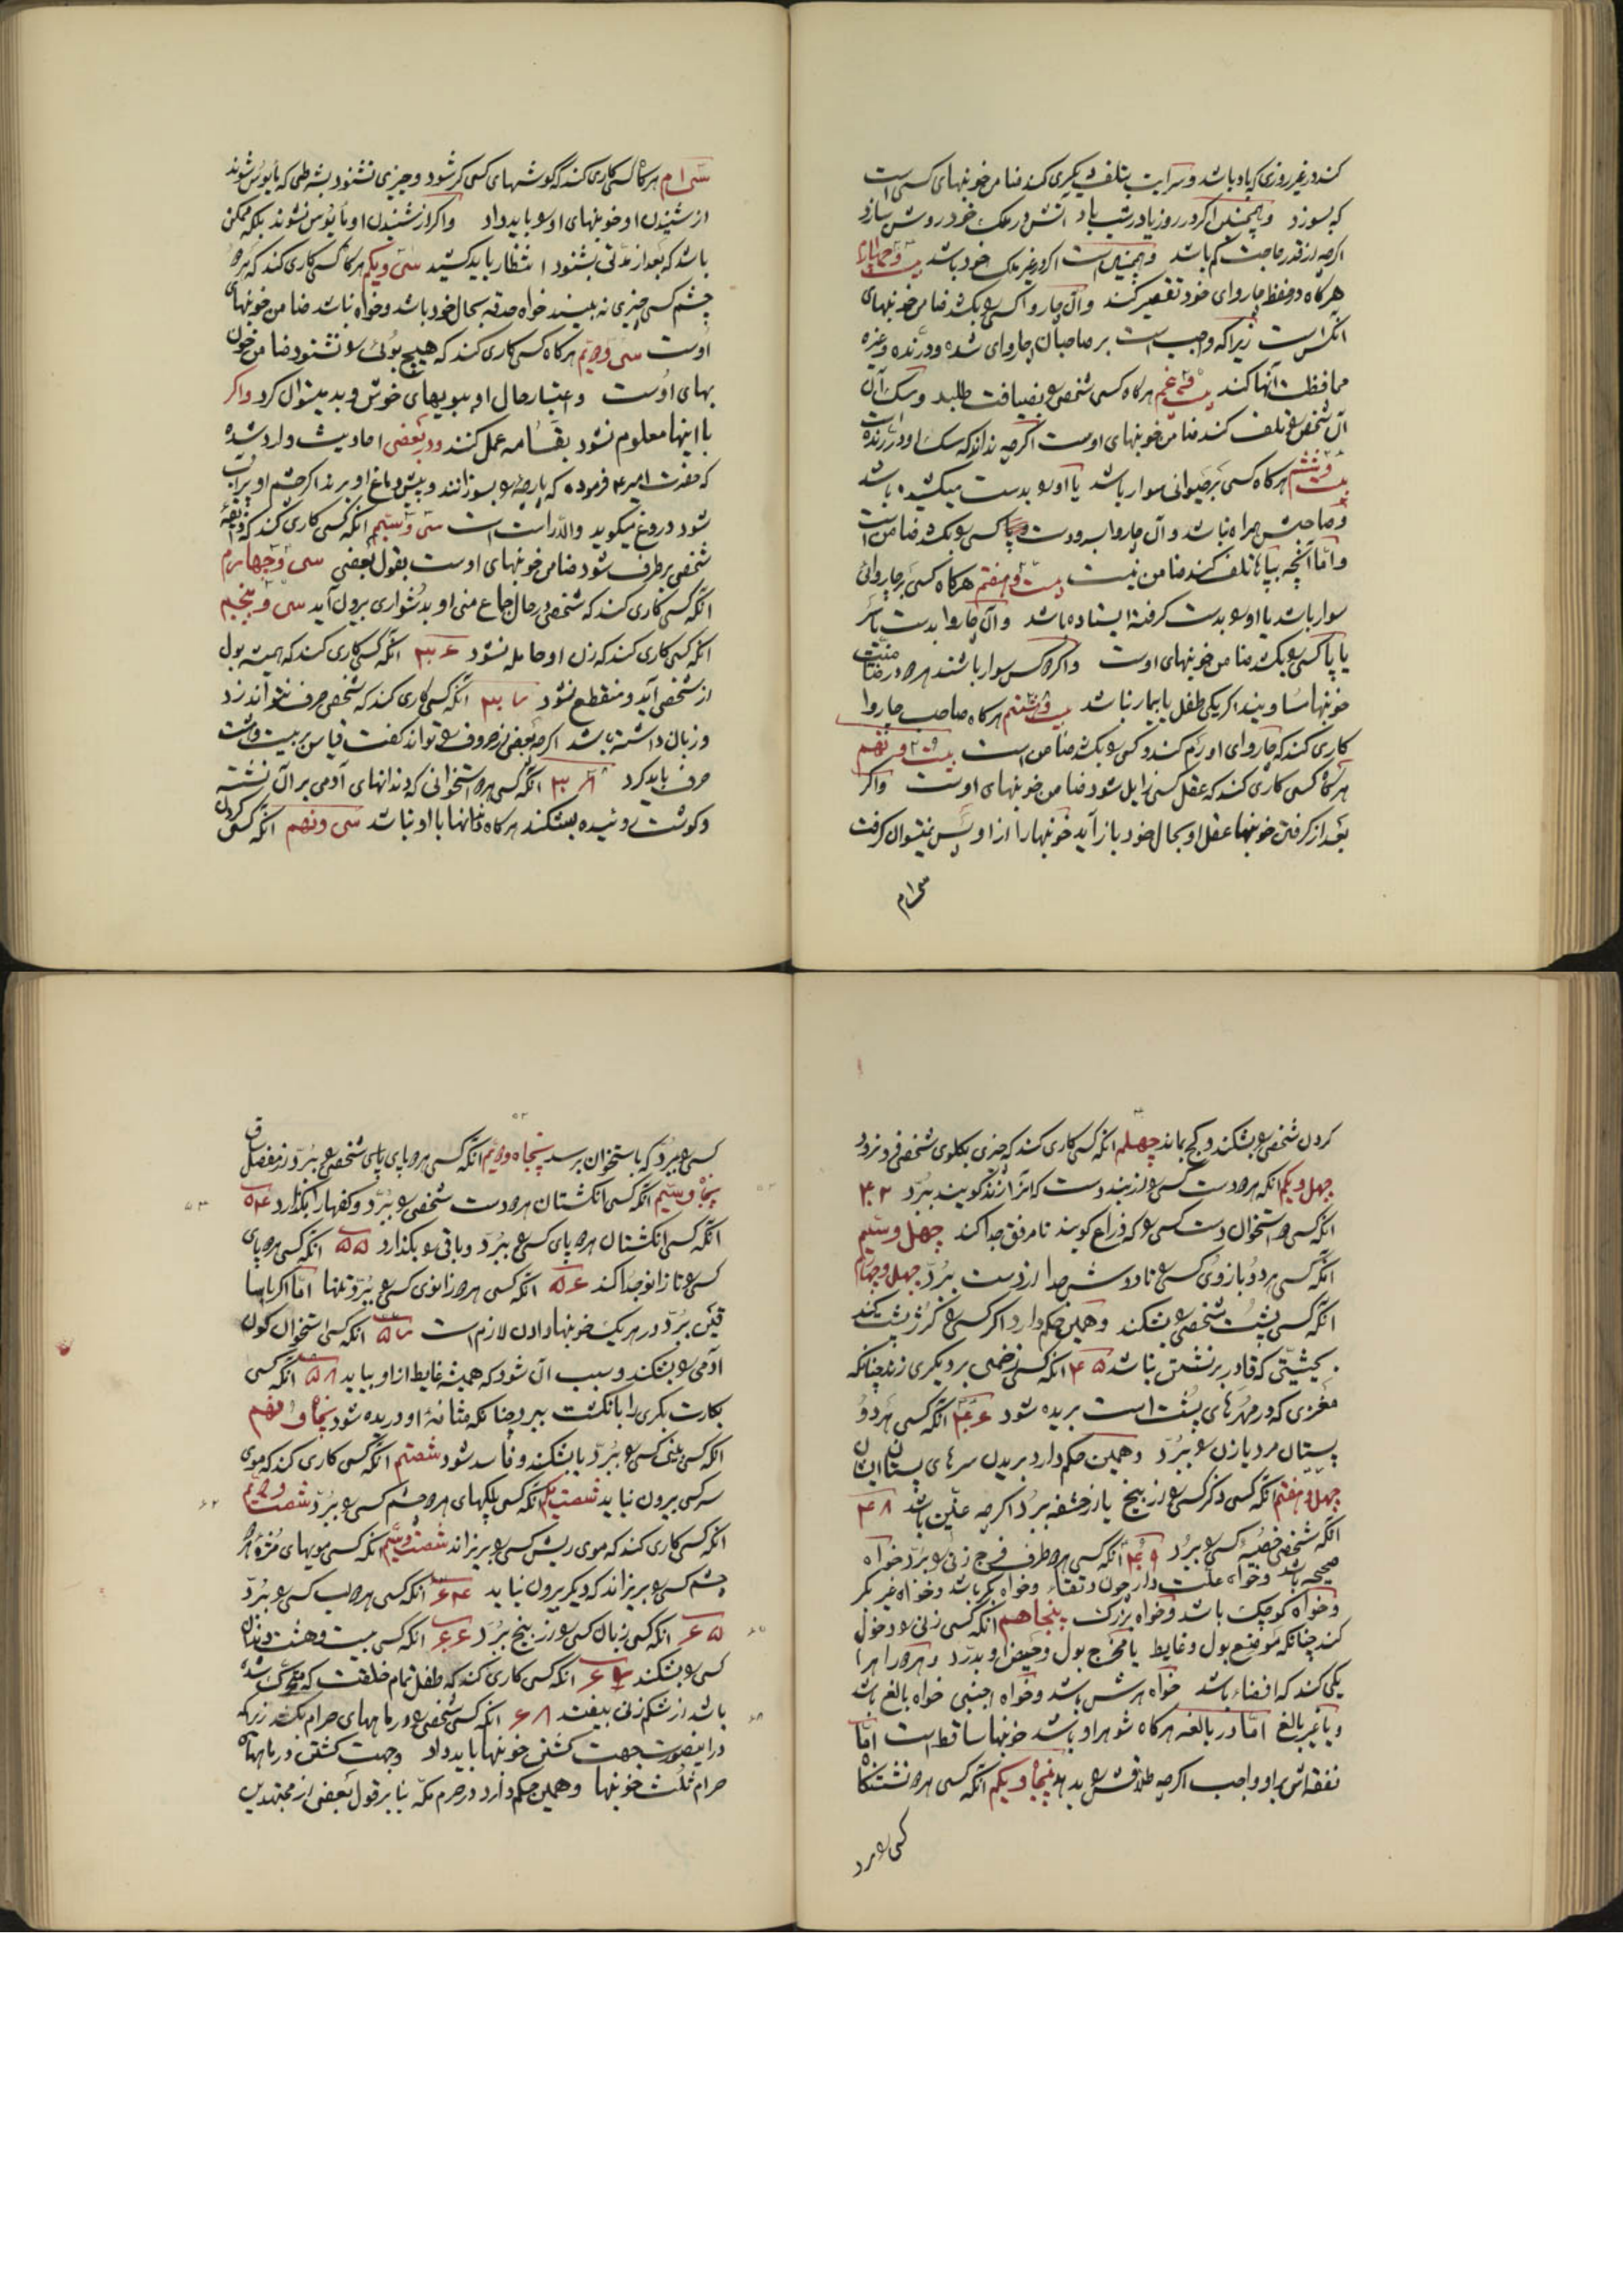 کند در غیر روزی که باد باشد و سرایت بتلف دیگری کند ضامن خونبهای کسی است
که بسوزد و همچنین اگر در روز باد در شب باد آتش در ملک خود روشن سازد
اگرچه از قدر حاجت کم باشد و همچنین است اگر در غیر ملک خود باشد بیست و چهارم
هرگاه در حفظ چاروای خود تقصیر کند و آن چاروا کسی را بکشد ضامن خونبهای
آنکس است زیرا که واجب است بر صاحبان چاروای شده و درنده و غیره
محافظت آنها کند بیست و پنجم هرگاه کسی شخصی را بضیافت طلبد و سک آن
آن شخص را تلف کند ضامن خونبهای اوست اگرچه نداند که سک او درنده است
بیست و ششم هرگاه کسی بر حیوانی سوار باشد یا او را بدست میکشیده باشد
و صاحبش همراه نباشد و آن چاروا بسر و دست کسی را بکشد ضامن است
و اما آنچه بپا تلف کند ضامن نیست بیست و هفتم هرگاه کسی بر چاروائی
سوار باشد یا او را بدست گرفته ایستاده باشد و آن چاروا بدست یا سر
یا پا کسی را بکشد ضامن خونبهای اوست و اگر دو کس سوار باشند هر دو در ضمانت
خونبها مساویند اگر یکی طفل یا بیمار نباشد بیست و هشتم هرگاه صاحب چاروا
کاری کند که چاروای او رم کند و کسی را بکشد ضامن است بیست و نهم
هرگاه کسی کاری کند که عقل کسی زایل شود ضامن خونبهای اوست و اگر
بعد از گرفتن خونبها عقل او بحال خود باز آید خونبها را از او پس نمیتوان گرفت
سی‌ام
سی‌ام هرگاه کسی کاری کند که گوشهای کسی کر شود و چیزی نشنود بشرطی که مأیوس شوند
از شنیدن او خونبهای او را باید داد و اگر از شنیدن او مأیوس نشوند بلکه ممکن
باشد که بعد از مدتی بشنود انتظار باید کشید سی و یکم هرگاه کسی کاری کند که هر دو
چشم کسی چیزی نه بیند خواه حدقه بحال خود باشد و خواه نباشد ضامن خونبهای
اوست سی و دویم هرگاه کسی کاری کند که هیچ بوئی را نشنود ضامن خون
بهای اوست و اعتبار حال او ببویهای خوش و بد میتوان کرد و اگر
با اینها معلوم نشود بقسامه عمل کنند و در بعضی احادیث وارد شده
که حضرت امیر ع فرموده که پارچه را بسوزانند و پیش دماغ او برند اگر چشم او پر آب
شود دروغ میگوید والا راست است سی و سیم آنکه کسی کاری کند که ذایقه
شخصی برطرف شود ضامن خونبهای اوست بقول بعضی سی و چهارم
آنکه کسی کاری کند که شخصی در حال جماع منی او بدشواری بیرون آید سی و پنجم
آنکه کسی کاری کند که زن او حامله نشود ۳۶ آنکه کسی کاری کند که همیشه بول
از شخصی آید و منقطع نشود ۳۷ آنکه کسی کاری کند که شخصی حرف نتواند زد
و زبان داشته باشد اگرچه بعضی از حروف را تواند گفت قیاس بر بیست و هشت
حرف باید کرد ۳۸ آنکه کسی هر دو استخوانی که دندانهای آدمی بر آن نشسته
و گوشت روئیده بشکند هرگاه دندانها با او نباشد سی و نهم آنکه کسی گردن
کردن شخصی را بشکند و کج بماند چهلم آنکه کسی کاری کند که چیزی بگلوی شخصی فرو نرود
چهل و یکم آنکه هر دو دست کسی را از بند دست که آنرا زند گویند ببرد ۴۲
آنکه کسی دو استخوان دست کسی را که ذراع گویند تا مرفق جدا کند چهل و سیم
آنکه کسی هر دو بازوی کسی را تا دوش جدا از دست ببرد چهل و چهارم
آنکه کسی پشت شخصی را بشکند و همین حکم دارد اگر کسی را کوژ پشت کند
بحیثیتی که قادر بر نشستن نباشد ۴۵ آنکه کسی زخمی بر دیگری زند چنانکه
مغزی که در مهرهای پشت است بریده شود ۴۶ آنکه کسی هر دو
پستان مرد یا زن را ببرد و همین حکم دارد بریدن سرهای پستان ایشان
چهل و هفتم آنکه کسی ذکر کسی را از بیخ یا از حشفه ببرد اگرچه عنین باشد ۴۸
آنکه شخصی خصیه کسی را ببرد ۴۹ آنکه کسی هر دو طرف فرج زنی را ببرد خواه
صحیحه باشد و خواه علت دار چون رتقاء و خواه بکر باشد و خواه غیر بکر
و خواه کوچک باشد و خواه بزرگ پنجاهم آنکه کسی زنی را دخول
کند چنانکه موضع بول و غایط یا مخرج بول و حیض او بدرد و هر دو را
یکی کند که افضاء باشد خواه هرش باشد و خواه اجنبی خواه بالغ باشد
و یا غیر بالغ اما در بالغه هرگاه شوهر او باشد خونبها ساقط است اما
نفقه‌اش بر او واجب اگرچه طلاقش را بدهد پنجاه و یکم آنکه کسی هر دو نشستنگاه
کسی را برد
کسی را ببرد که باستخوان برسد پنجاه و دویم آنکه کسی هر دو پای شخصی را ببرد از مفصل ساق
پنجاه و سیم آنکه کسی انگشتان هر دو دست شخصی را ببرد و کفها را بگذارد ۵۴
آنکه کسی انگشتان هر دو پای کسی را ببرد و باقی را بگذارد ۵۵ آنکه کسی هر دو پای
کسی را تا زانو جدا کند ۵۶ آنکه کسی هر دو زانوی کسی را ببرد تنها اما اگر با سا
قین ببرد در هر یک خونبها دادن لازم است ۵۷ آنکه کسی استخوان کون
آدمی را بشکند و سبب آن شود که همیشه غایط از او بیاید ۵۸ آنکه کسی
بکارت بکری را بانگشت ببرد چنانکه مثانهٔ او دریده شود پنجاه و نهم
آنکه کسی بینی کسی را ببرد یا بشکند و فاسد شود شصتم آنکه کسی کاری کند که موی
سر کسی بیرون نیاید شصت یکم آنکه کسی پلکهای هر دو چشم کسی را ببرد شصت و دویم
آنکه کسی کاری کند که موی ریش کسی را بریزاند شصت و سیم آنکه کسی مویهای مژه هر دو
چشم کسی را بریزاند که دیگر بیرون نیاید ۶۴ آنکه کسی هر دو لب کسی را ببرد
۶۵ آنکه کسی زبان کسی را از بیخ ببرد ۶۶ آنکه کسی بیست و هشت دندان
کسی را بشکند ۶۷ آنکه کسی کاری کند که طفل تمام خلقت که متحرک شده
باشد از شکم زنی بیفتد ۶۸ آنکه کسی شخصی را در ماههای حرام بکشد زیرا که
در اینصورت جهت کشتن خونبها باید داد و جهت کشتن در ماههای
حرام ثلث خونبها و همین حکم دارد در حرم مکه بنا بر قول بعضی از مجتهدین